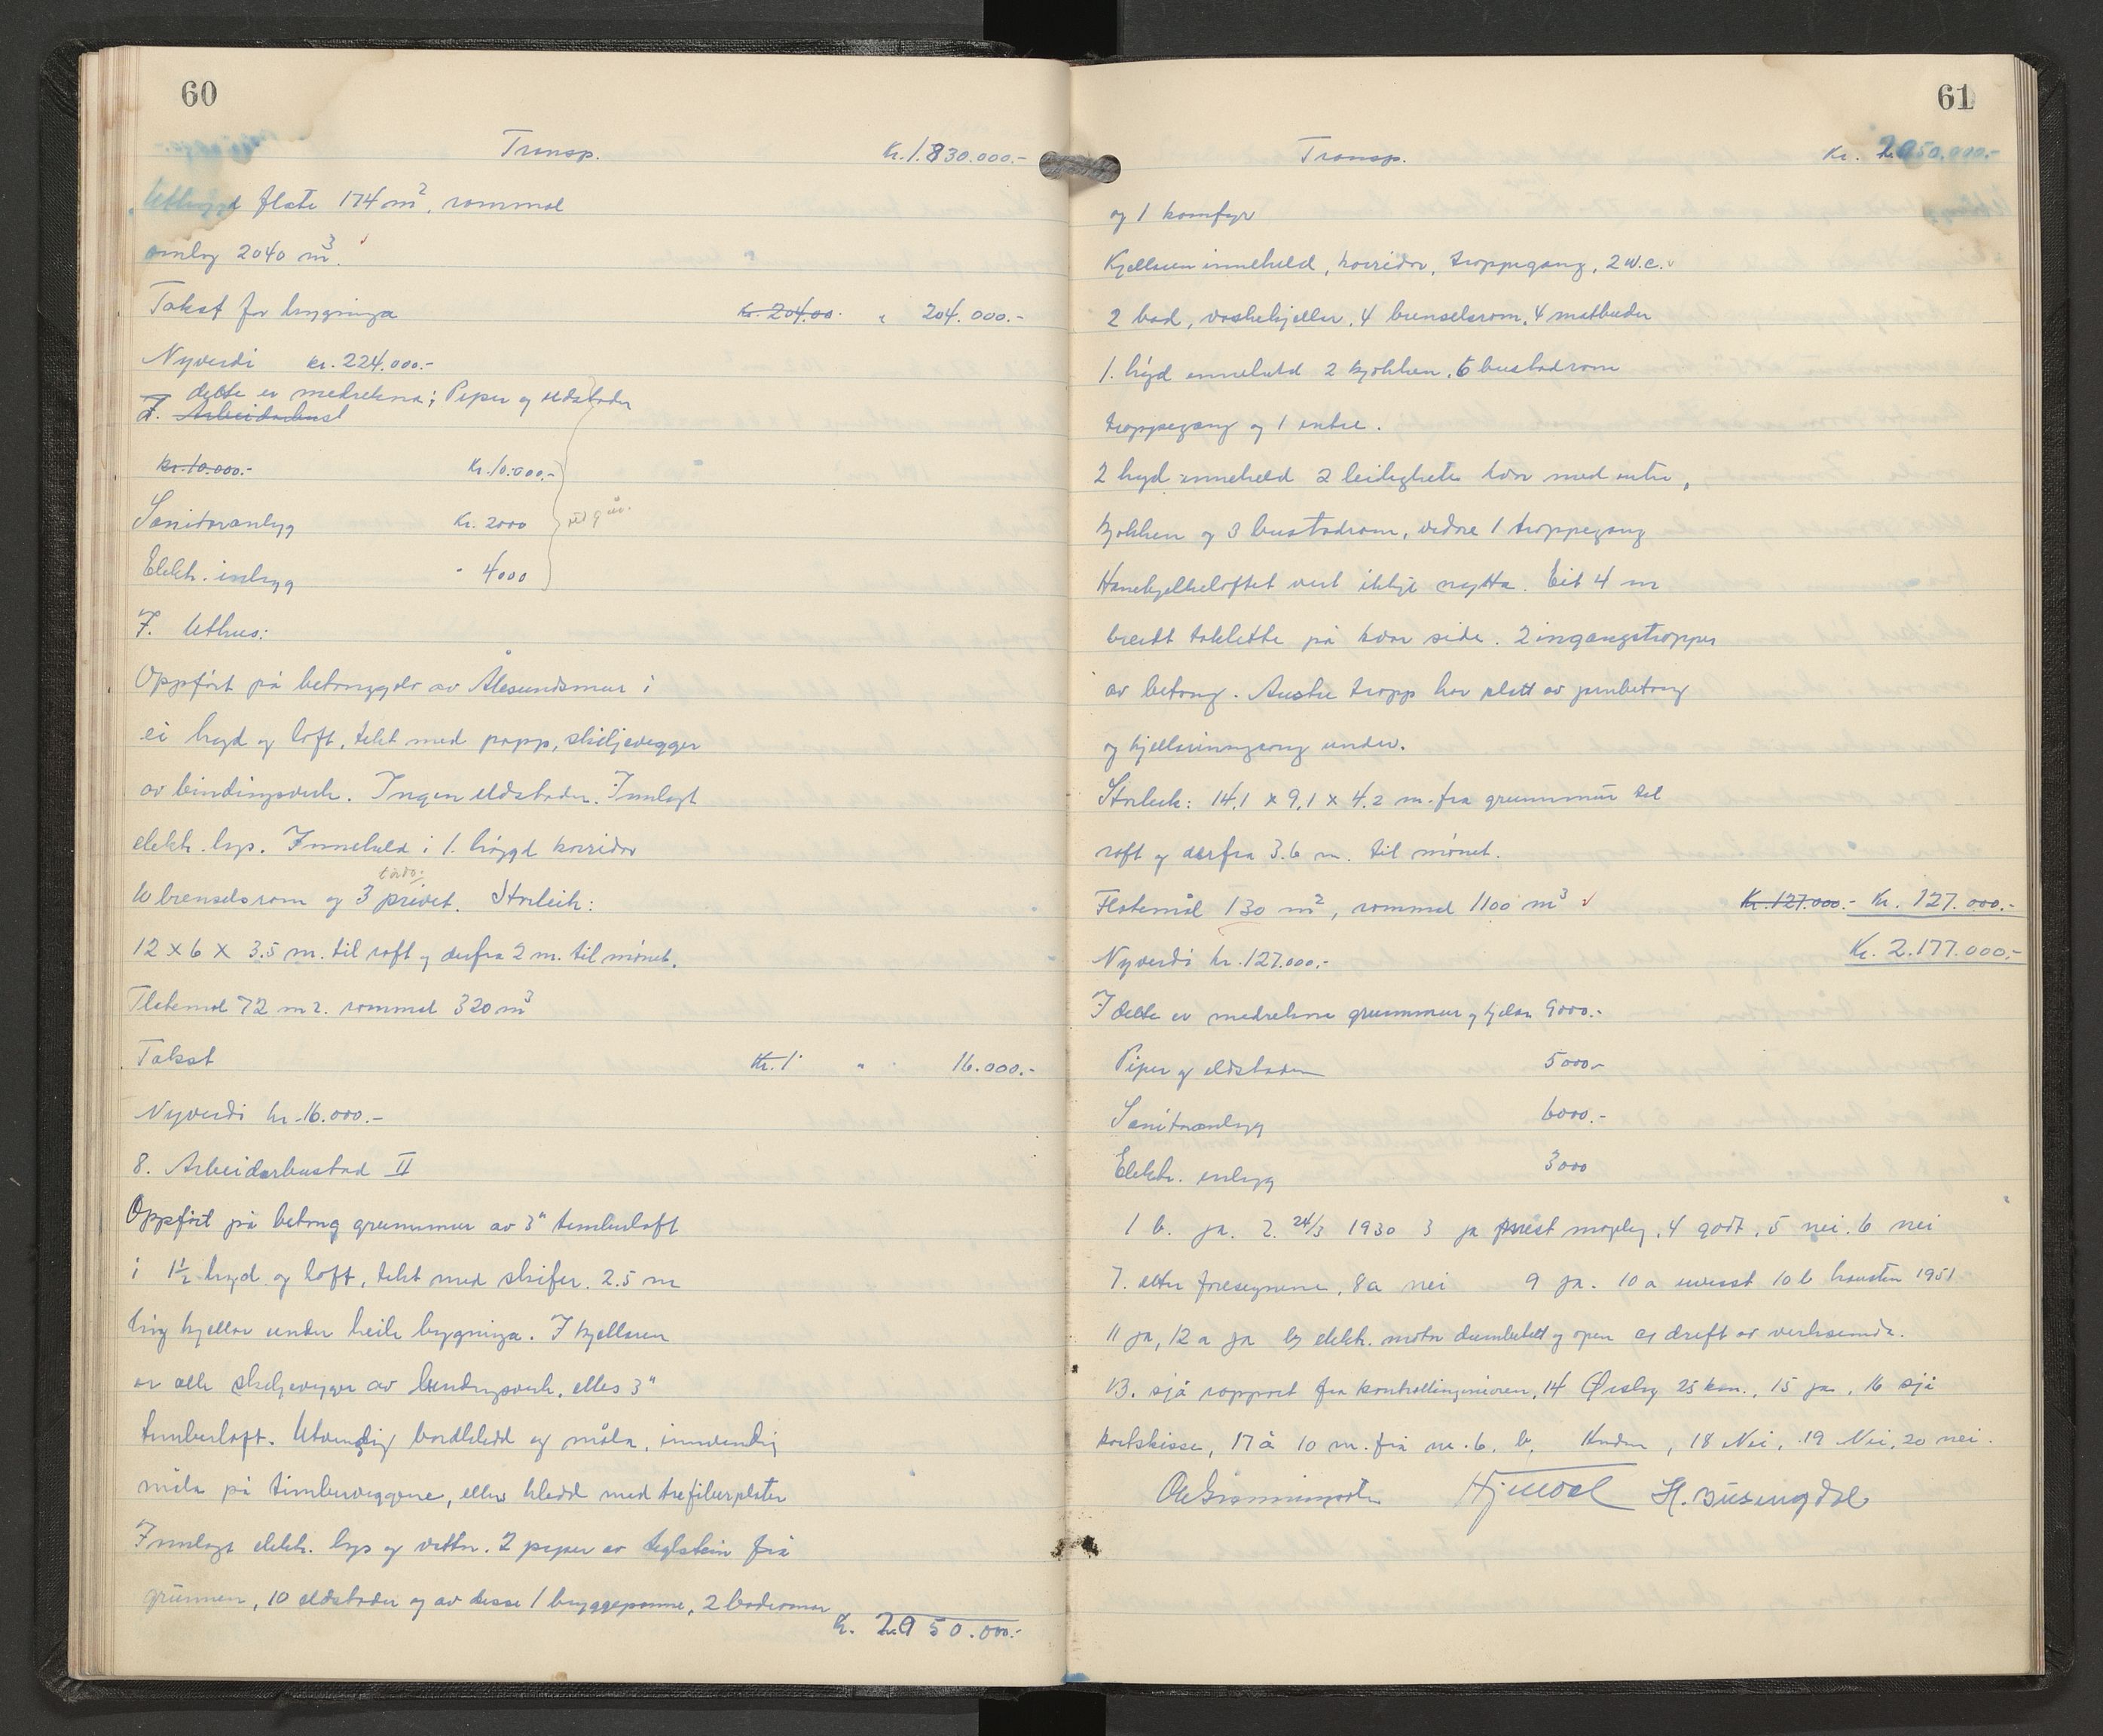 60
Transp. Kr. 1.830.000.-
Utbygd flate 174 m², rommål
omlag 2040 m³.
Takst for bygninga Kr. 204.00. " 204.000.-
Nyverdi kr. 224.000.-
I dette er medrekna; Piper og eldstader
7. Arbeidarbust
kr. 10.000.- Kr. 10.000.-
Sanitæranlegg Kr. 2000
Elekt. innlegg " 4000
7. Uthus:
Oppført på betonggolv av Ålesundsmur i
ei høgd og loft, tekt med papp, skiljevegger
av bindingsverk. Ingen eldstader. Innlagt
elektr. lys. Inneheld i 1. høgd korridor
10 brenselsrom og 3 privet. Storleik:
12 x 6 x 3.5 m. til raft og derfra 2 m. til mønet.
Flatemål 72 m2. rommål 320 m³
Takst Kr. 1 " 16.000.-
Nyverdi kr. 16.000.-
8. Arbeidarbustad II
Oppført på betong grunnmur av 3" timberlaft
i 1½ høgd og loft, tekt med skifer. 2.5 m
høg kjellar under heile bygninga. I kjellaren
er alle skiljevegger av bindingsverk, elles 3"
timberlaft. Utvendig bordkledd og måla, innvendig
måla på timberveggene, elles kledd med trefiberplater
Innlagt elektr. lys og vatn. 2 piper av teglstein frå
grunnen, 10 eldstader og av desse 1 bryggepanne, 2 badeomnar
Kr. 2.050.000.-
61
Transp. Kr. 2.050.000.-
og 1 komfyr
Kjellaren inneheld, korridor, troppegang, 2 w.c.
2 bad, vaskekjellar, 4 brenselsrom, 4 matbuder
1. høgd inneheld 2 kjøkken, 6 bustadrom
troppegang og 1 entre.
2 høgd inneheld 2 leilegheter kvar med entre,
kjøkken og 3 bustadrom, vidare 1 troppegang
Hanebjelkeloftet vert ikkje nytta. Eit 4 m
breidt takløtte på kvar side. 2 inngangstropper
av betong. Austre tropp har platt av jernbetong
og kjellarinngang under.
Storleik: 14,1 x 9,1 x 4.2 m. fra grunnmur til
raft og derfra 3.6 m. til mønet.
Flatemål 130 m², rommål 1100 m³ Kr. 127.000.- Kr. 127.000.-
Nyverdi kr. 127.000.- Kr. 2.177.000.-
I dette er medrekna grunnmur og kjelar 9000.-
Piper og eldstader 5000.-
Sanitæranlegg 6000.-
Elektr. innlegg 3000
1 b. ja. 2. 24/3 1930 3 ja mogleg, 4 godt, 5 nei. 6 nei
7. etter føresegnene, 8a nei 9 ja. 10 a uvisst 10 b hausten 1951
11 ja, 12 a ja b) elektr. motor og open c) drift av verksemda.
13. sjå rapport fra kontrollingeniøren, 14 Ørsta 25 km., 15 ja, 16 sjå
kartskisse, 17 a 10 m. frå nr. 6. b. , 18 Nei, 19 Nei, 20 nei.